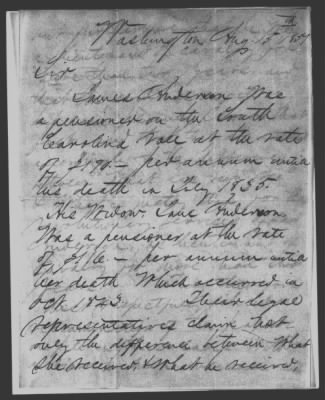 Washington Aug 15 1857
Sir
James Anderson was
a pensioner on the South
Carolina Roll at the rate
of per annum until
his death in Feby 1835.
His Widow Jane Anderson
was a pensioner at the rate
of per annum until
her death which occurred in
Oct 1843. Their legal
representatives claim not
only the difference between what
she received, & what he received,